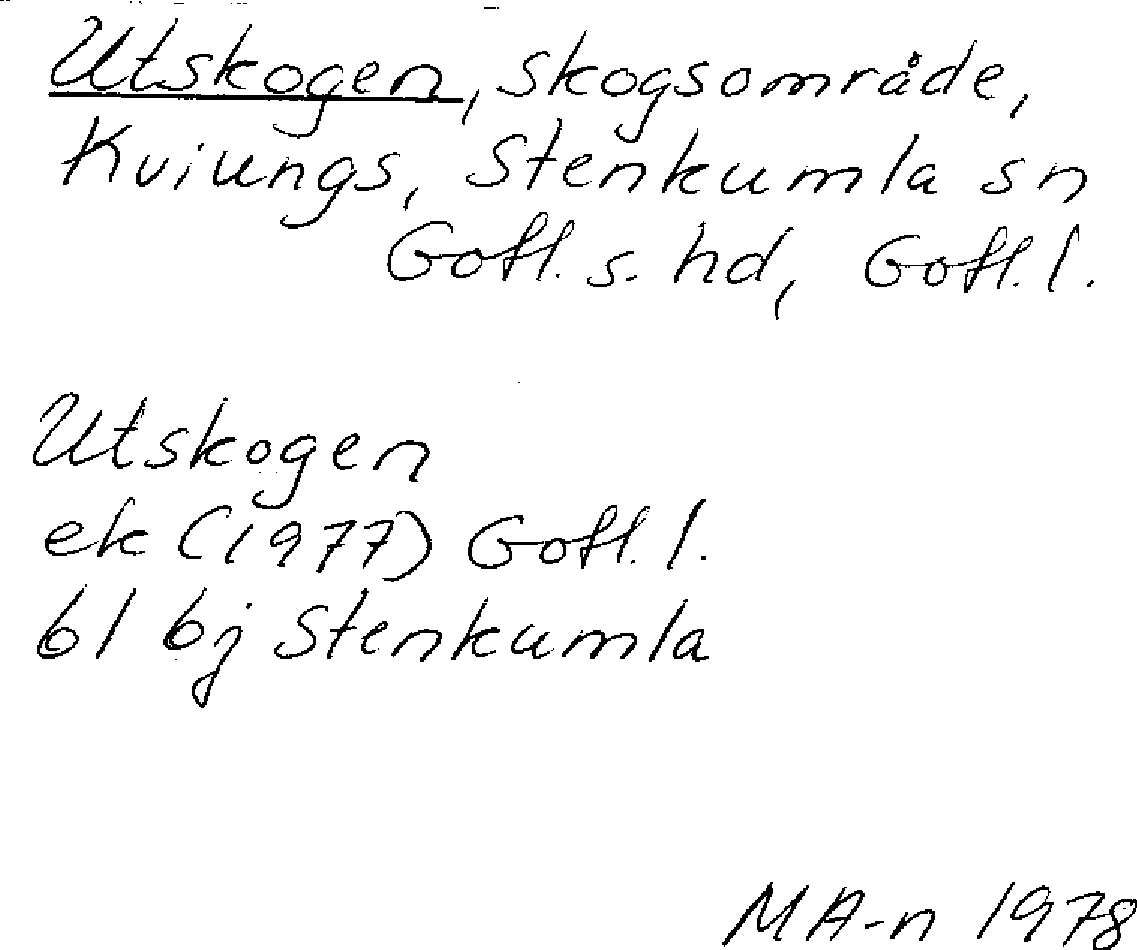 Utskogen, skogsområde,
Kviungs, Stenkumla sn
Gotl. s. hd, Gotl. l.
Utskogen
ek (1977) Gotl. l.
bl bj Stenkumla
MA-n 1978